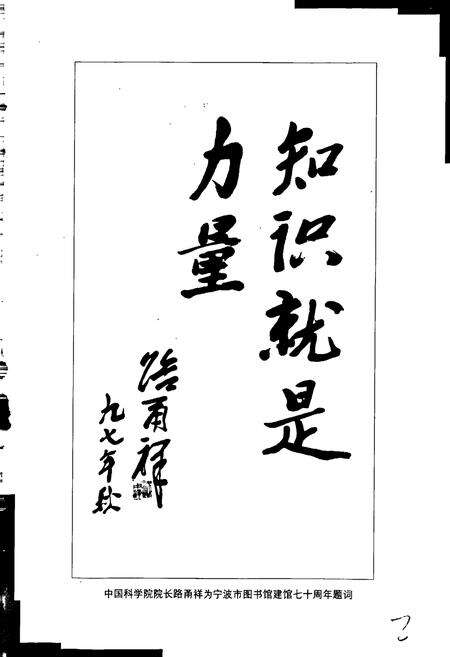 知识就是
力量
路甬祥
九七年秋
中国科学院院长路甬祥为宁波市图书馆建馆七十周年题词